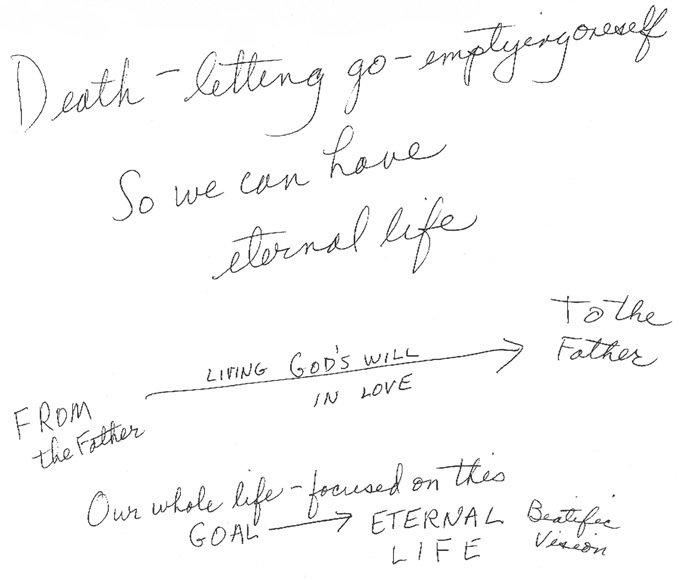 Death – letting go – emptying oneself
So we can have
eternal life
To the
Father
LIVING GOD'S WILL
IN LOVE
FROM
the Father
Our whole life – focused on this
GOAL → ETERNAL Beatific
LIFE Vision